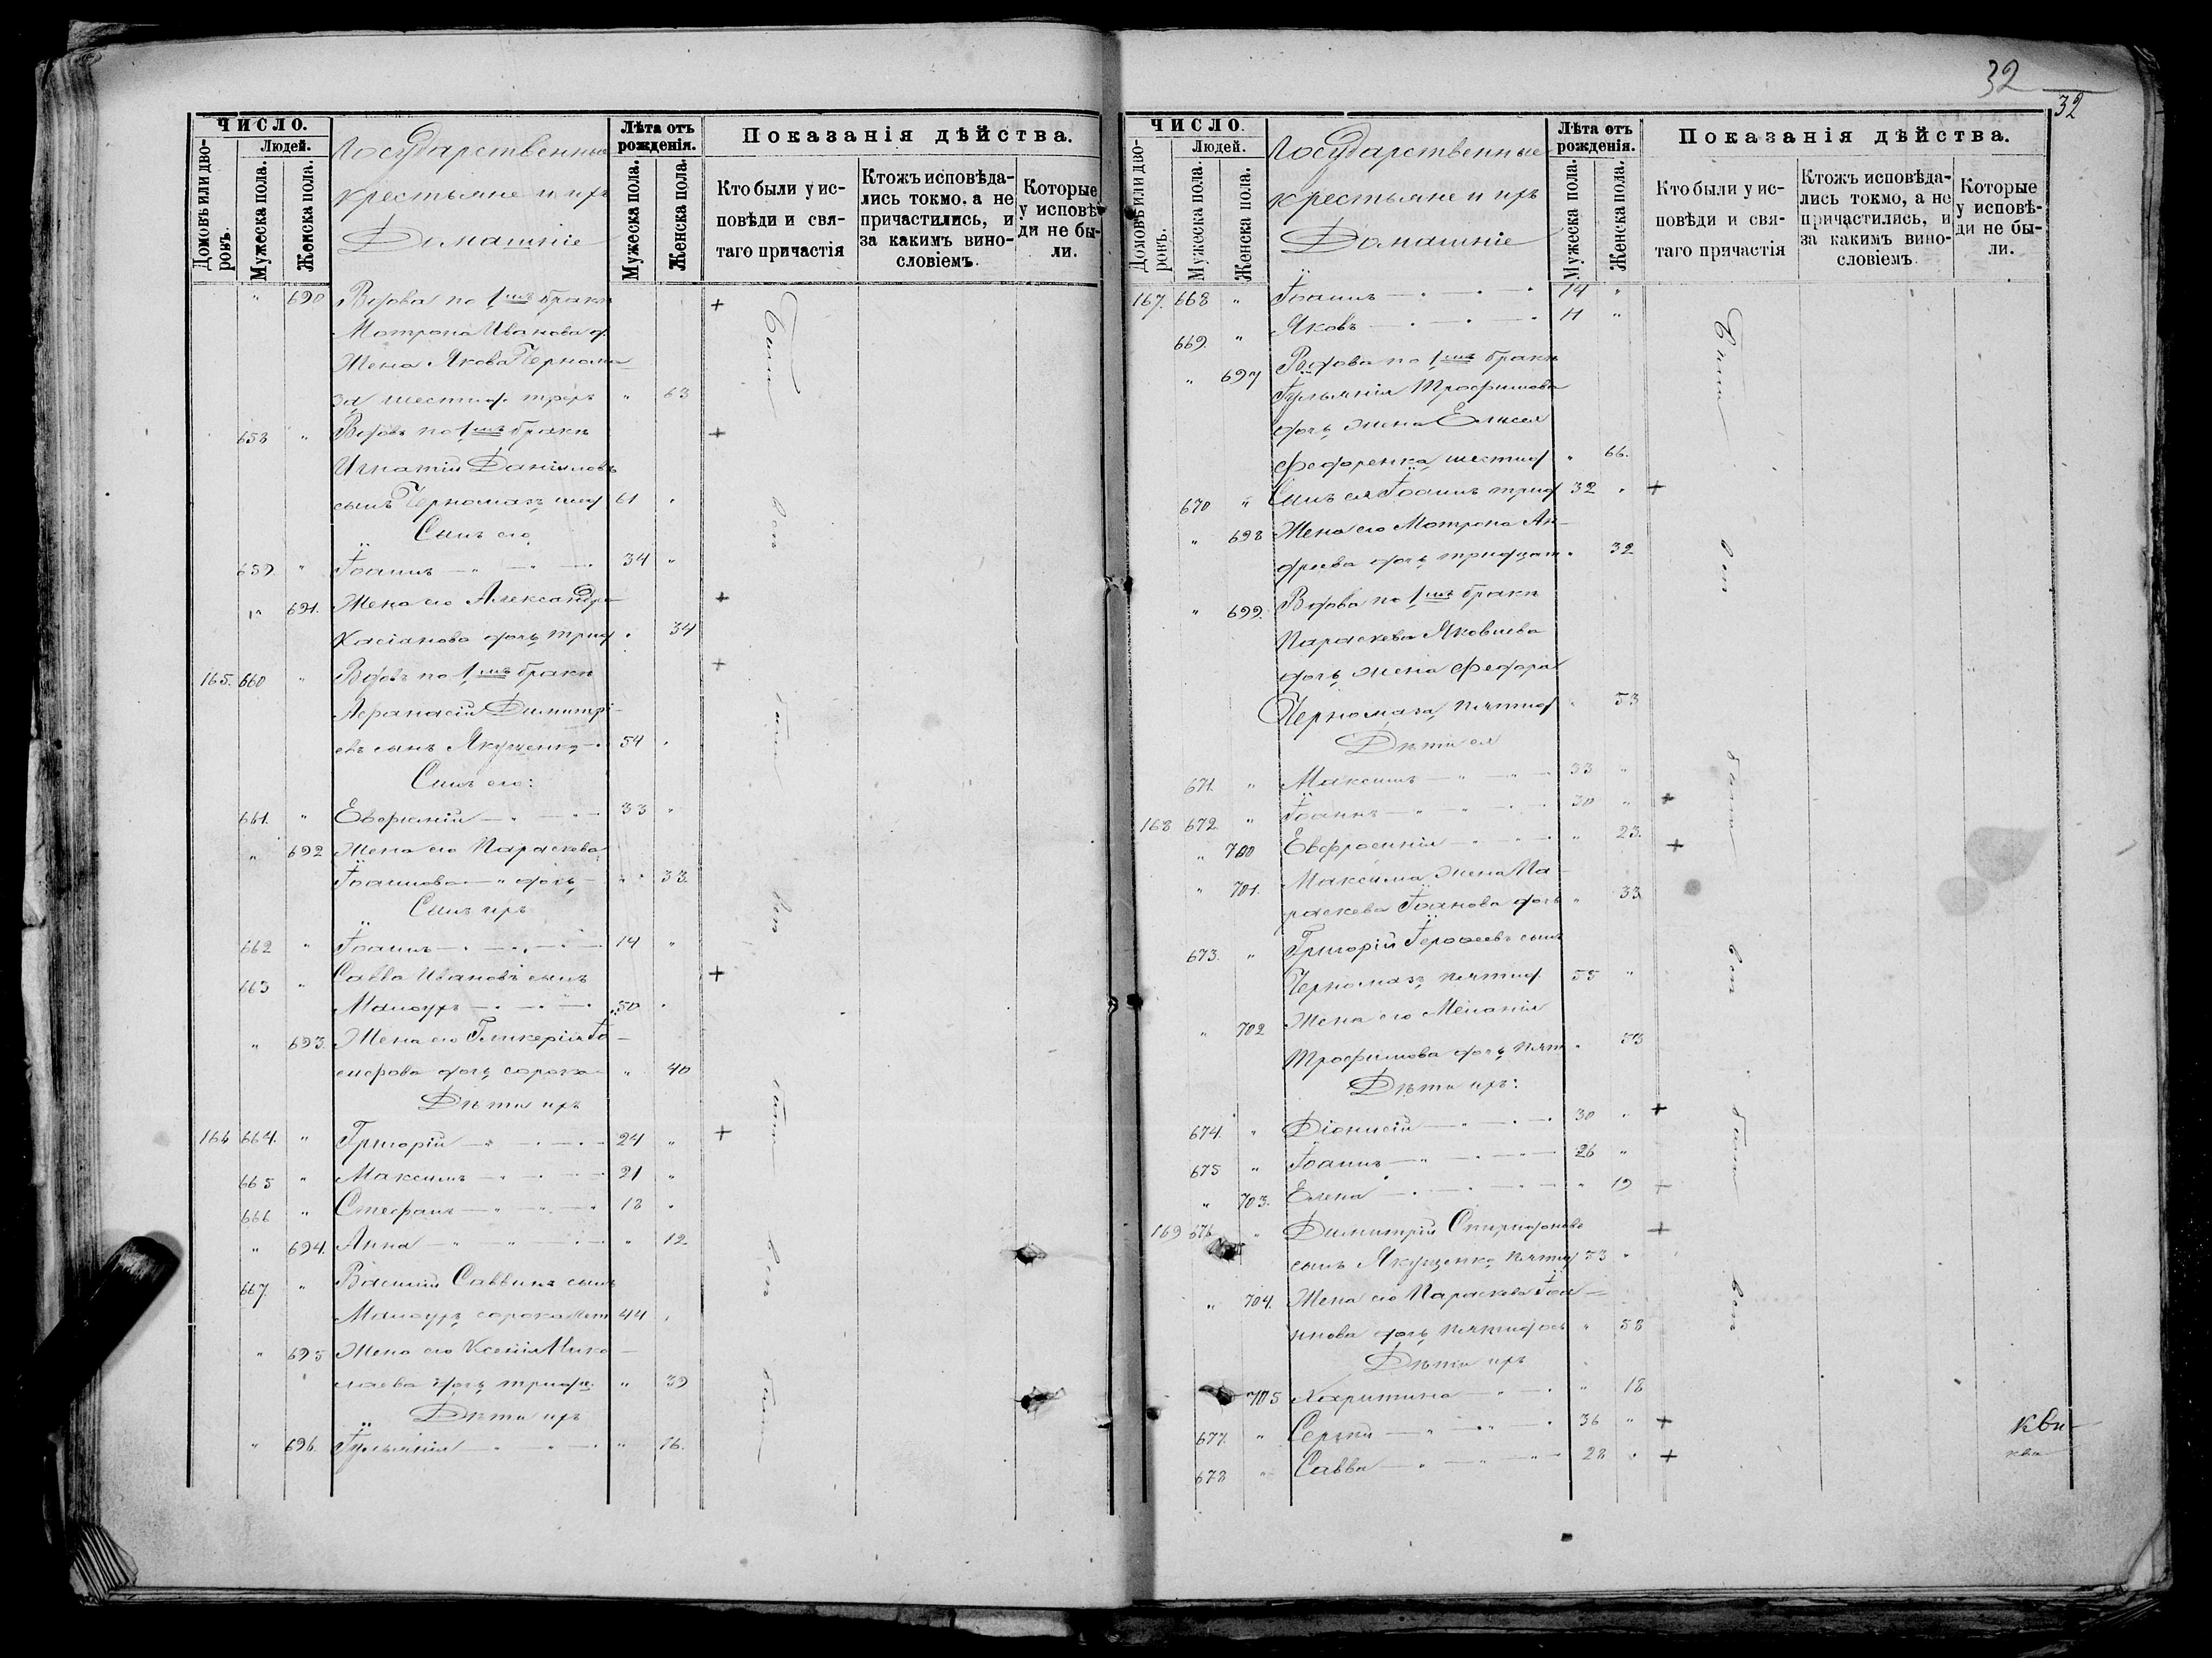 ЧИСЛО.
Людей.
Домовъ или дворовъ.
Мужеска пола.
Женска пола.
Государственные
крестьяне и ихъ
Домашніе
Лѣта отъ
рожденія.
Мужеска пола.
Женска пола.
Показанія дѣйства.
Кто были у ис-
повѣди и свя-
таго причастія
Ктожъ исповѣда-
лись токмо, а не
причастились, и
за какимъ вино-
словіемъ.
Которые
у исповѣ-
ди не бы-
ли.
" 690 Вдова по 1мъ бракѣ +
Мотрона Иванова д.
Жена Якова Чернома-
за шестид. трехъ " 63
658 " Вдовъ по 1мъ бракѣ +
Игнатій Даніиловъ
сынъ Черномазъ шед 61 "
Сынъ его
659. " Іоаннъ 34 "
" 691. Жена его Александра +
Касіанова дочь трид " 34
165. 660 " Вдовъ по 1мъ бракѣ +
Афанасій Димитрі-
евъ сынъ Якущенко 54 "
Сынъ его:
661. " Евфимій 33 "
" 692 Жена его Параскева
Іоаннова дочь " 33.
Сынъ ихъ
662 " Іоаннъ 14 "
663 " Савва Ивановъ сынъ +
50 "
" 693. Жена его Гликерія Іо-
сифова дочь сорока " 40
Дѣти ихъ
166 664. " Григорій 24 " +
665 " Максимъ 21 "
666 " Стефанъ 18 "
" 694. Анна " 12
667. " Василій Саввинъ сынъ
сорока лет 44 "
" 695 Жена его Ксенія Нико-
лаева дочь тридц. " 39
Дѣти ихъ
" 696. Іуліанія " 16.
Были вси были вси были вси были
32
32
ЧИСЛО.
Людей.
Домовъ или дворовъ.
Мужеска пола.
Женска пола.
Государственные
крестьяне и ихъ
Домашніе
Лѣта отъ
рожденія.
Мужеска пола.
Женска пола.
Показанія дѣйства.
Кто были у ис-
повѣди и свя-
таго причастія
Ктожъ исповѣда-
лись токмо, а не
причастились, и
за какимъ вино-
словіемъ.
Которые
у исповѣ-
ди не бы-
ли.
167. 668 " Іоаннъ 14 "
669. " Яковъ 11 "
" 697 Вдова по 1мъ бракѣ
Іуліанія Трофимова
дочь жена Елисея
Федоренка шестид " 66.
670 " Сынъ ея Іоаннъ трид 32 " +
" 698 Жена его Мотрона Ан-
дреева дочь тридцат " 32
" 699. Вдова по 1мъ бракѣ
Параскева Яковлева
дочь жена Феодора
Черномаза пятид " 53
Дѣти ея
671. " Максимъ 33 "
168 672 " Іоаннъ 30 " +
" 700 Евфросинія " 23. +
" 701. Максима жена Па-
раскева Іоанова дочь " 33
673. " Григорій сынъ
Черномазъ пятид 55 "
" 702 Жена его Меланія
Трофимова дочь пят " 53
Дѣти ихъ:
674. " Діонисій 30 " +
675 " Іоаннъ 26 "
" 703. Елена " 19
169 676 " Димитрій Спиридоновъ +
сынъ Якущенко пятид 53 "
" 704. Жена его Параскева Іоа-
ннова дочь пятидес " 58
Дѣти ихъ
705 Харитина " 18
677. " Сергій 36 " +
678 " Савва 28 " +
Были вси были вси были вси